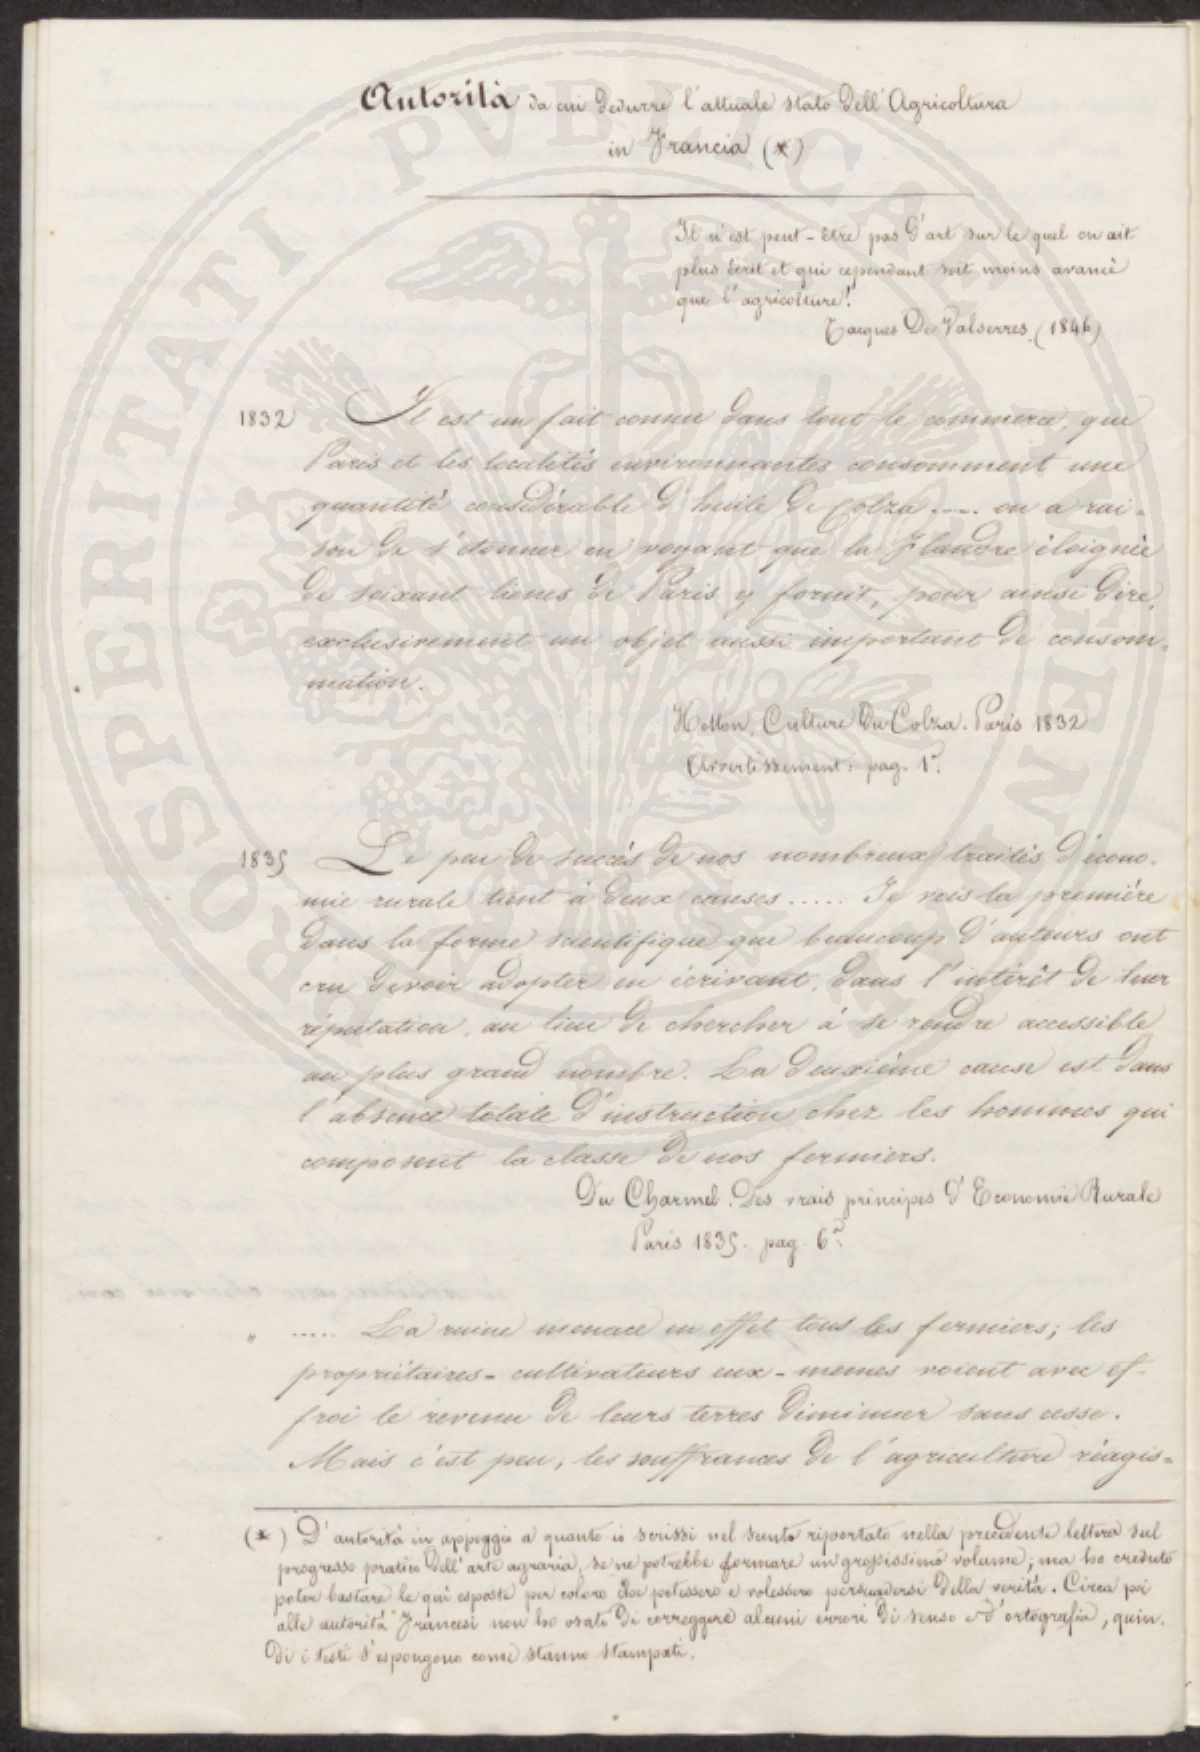 Autorità da cui dedurre l'attuale stato dell'Agricoltura
in Francia (*)
Il n'est peut-être pas d'art sur le quel on ait
plus écrit et qui cependant soit moins avancè
que l'agricolture!
Jacques De Valserres. (1846)
1832 Il est un fait connu dans tout le commerce, que
Paris et les localités environnantes consomment une
quantité considérable d'huile de Colza ..... on a rai-
son de s'étonner en voyant que la Flandre éloignée
de soixant lieues de Paris y fornit, pour ainsi dire,
exclusivement un objet aussi important de consom-
mation.
Hotton, Culture du Colza. Paris 1832
Avvertissement: pag. 1ª.
1835 Le peu de succés de nos nombreux traités d'écono-
mie rurale tient à deux causes ..... Je vois la première
dans la forme scientifique que beaucoup d'auteurs ont
cru devoir adopter en écrivant, dans l'intérêt de leur
réputation, au lieu de chercher à se rendre accessible
au plus grand nombre. La deuxième cause est dans
l'absence totale d'instruction chez les hommes qui
composent la classe de nos fermiers.
Du Charmel. Des vrais principes d'Economie Rurale
Paris 1835. pag. 6ª.
" ..... La ruine menace en effet tous les fermiers; les
propriétaires-cultivateurs eux-memes voient avec ef-
froi le revenu de leurs terres diminuer sans cesse.
Mais c'est peu, les souffrances de l'agriculture réagis-
(*) D'autorità in appoggio a quanto io scrissi nel sunto riportato nella precedente lettera sul
progresso pratico dell'arte agraria, se ne potrebbe formare un grossissimo volume; ma ho creduto
poter bastare le quì esposte per coloro che potessero e volessero persuadersi della verità. Circa poi
alle autorità Francesi non ho osato di correggere alcuni errori di senso e d'ortografia, quin-
di i testi s'espongono come stanno stampati.
PROSPERITATI PUBLICAE AUGENDAE